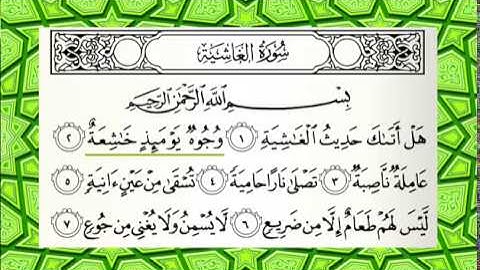 سُورَةُ الغَاشِيَةِ
بِسْمِ اللَّهِ الرَّحْمَٰنِ الرَّحِيمِ
هَلْ أَتَىٰكَ حَدِيثُ الْغَاشِيَةِ ١ وُجُوهٌ يَوْمَئِذٍ خَاشِعَةٌ ٢
عَامِلَةٌ نَّاصِبَةٌ ٣ تَصْلَىٰ نَارًا حَامِيَةً ٤ تُسْقَىٰ مِنْ عَيْنٍ ءَانِيَةٍ ٥
لَّيْسَ لَهُمْ طَعَامٌ إِلَّا مِن ضَرِيعٍ ٦ لَّا يُسْمِنُ وَلَا يُغْنِي مِن جُوعٍ ٧